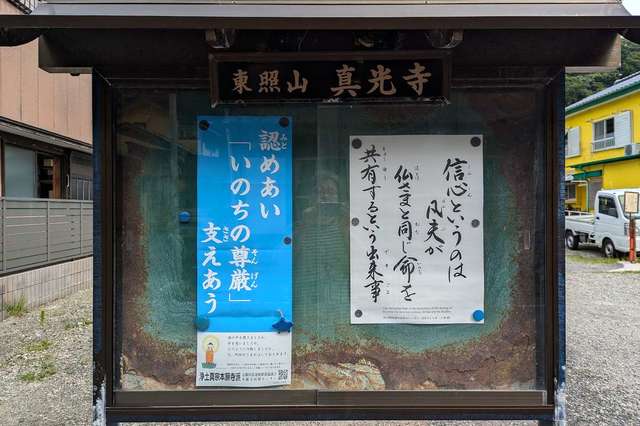 東照山 真光寺
信心というのは
凡夫が
仏さまと同じ命を
共有するという出来事
認めあい
「いのちの尊厳」
支えあう
浄土真宗本願寺派